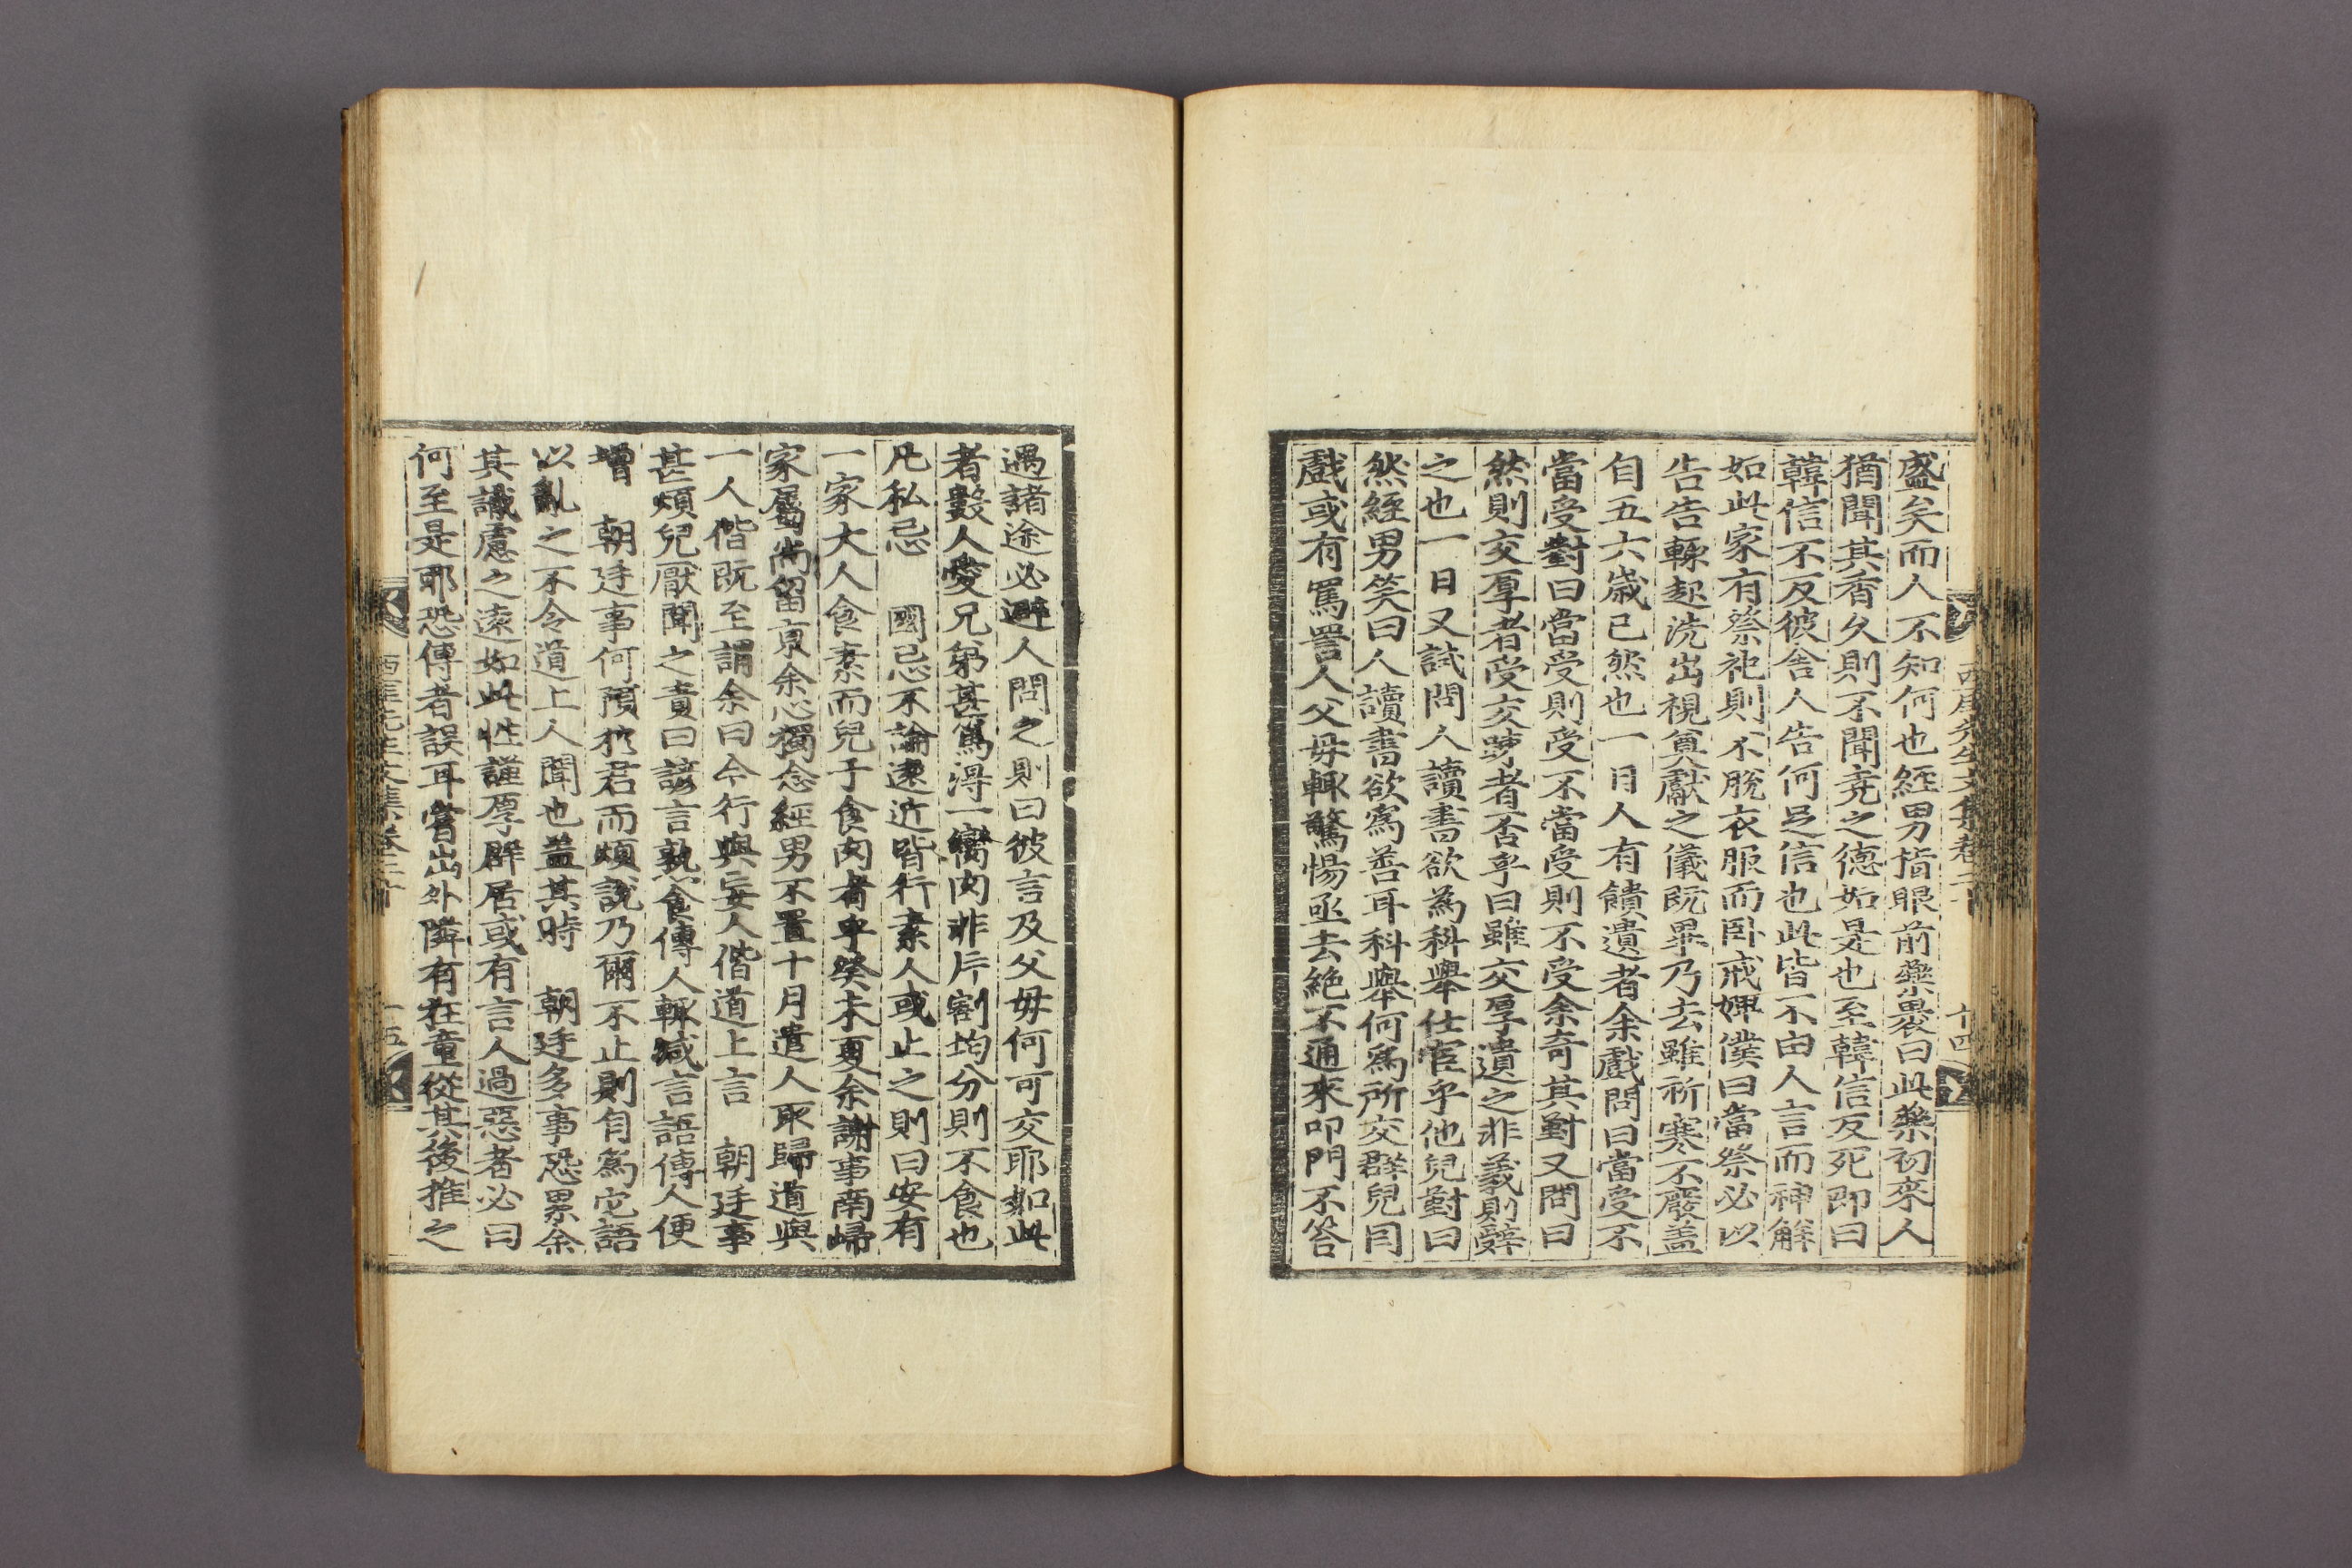 西厓先生文集卷二十
十四
盛矣而人不知何也經男指眼前藥裹曰此藥初來人
猶聞其香久則不聞堯之德如是也至韓信反死即曰
韓信不反彼舍人告何足信也此皆不由人言而神解
如此家有祭祀則不脫衣服而卧戒婢僕曰當祭必以
告告輒起洗出視奠獻之儀旣畢乃去雖祈寒不廢盖
自五六歲已然也一日人有饋遺者余戲問曰當受不
當受對曰當受則受不當受則不受余奇其對又問曰
然則交厚者受交踈者否乎曰雖交厚遺之非義則辭
之也一日又試問人讀書欲為科擧仕宦乎他兒對曰
然經男笑曰人讀書欲爲善耳科擧何爲所交群兒同
戲或有罵詈人父母輒驚惕亟去絶不通來叩門不答
遇諸途必避人問之則曰彼言及父母何可交耶如此
者數人愛兄弟甚篤得一臠肉非片割均分則不食也
凡私忌 國忌不論遠近皆行素人或止之則曰安有
一家大人食素而兒子食肉者乎癸未夏余謝事南歸
家屬尚留京余心獨念經男不置十月遣人取歸道與
一人偕旣至謂余曰今行與妄人偕道上言 朝廷事
甚煩兒厭聞之責曰諺言孰食傳人輒減言語傳人便
增 朝廷事何預於君而煩說乃爾不止則自爲它語
以亂之不令道上人聞也盖其時 朝廷多事恐累余
其識慮之遠如此性謹厚群居或有言人過惡者必曰
何至是耶恐傳者誤耳嘗出外隣有狂童從其後推之
西厓先生文集卷二十
十五